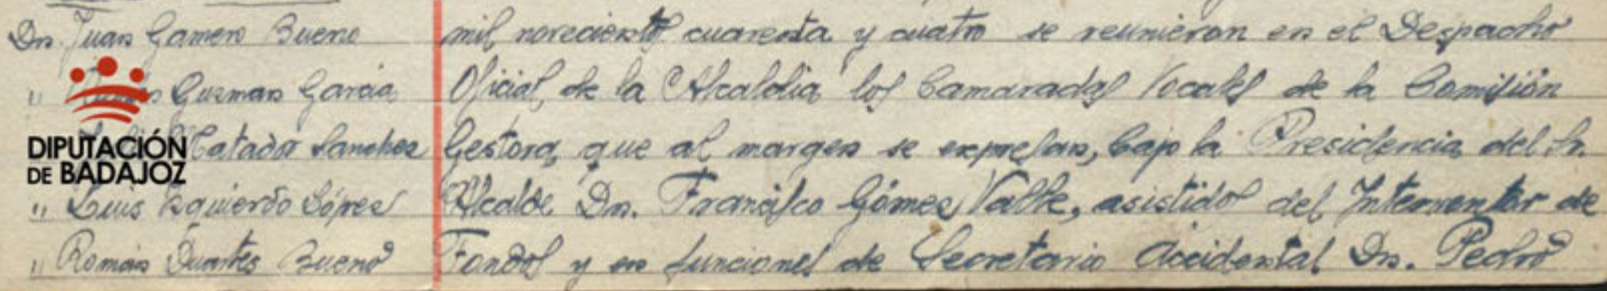 Dn. Juan Gamero Bueno
" Guzman Garcia
Matador Sanchez
" Luis Izquierdo López
" Román Duartes Bueno
DIPUTACIÓN
DE BADAJOZ
mil novecientos cuarenta y cuatro se reunieron en el Despacho
Oficial, de la Alcaldia los Camaradas Vocales de la Comisión
Gestora, que al margen se expresan, bajo la Presidencia del Sr.
Alcalde Dn. Francisco Gómez Valle, asistidos del Interventor de
Fondos y en funciones de Secretario Accidental Dn. Pedro